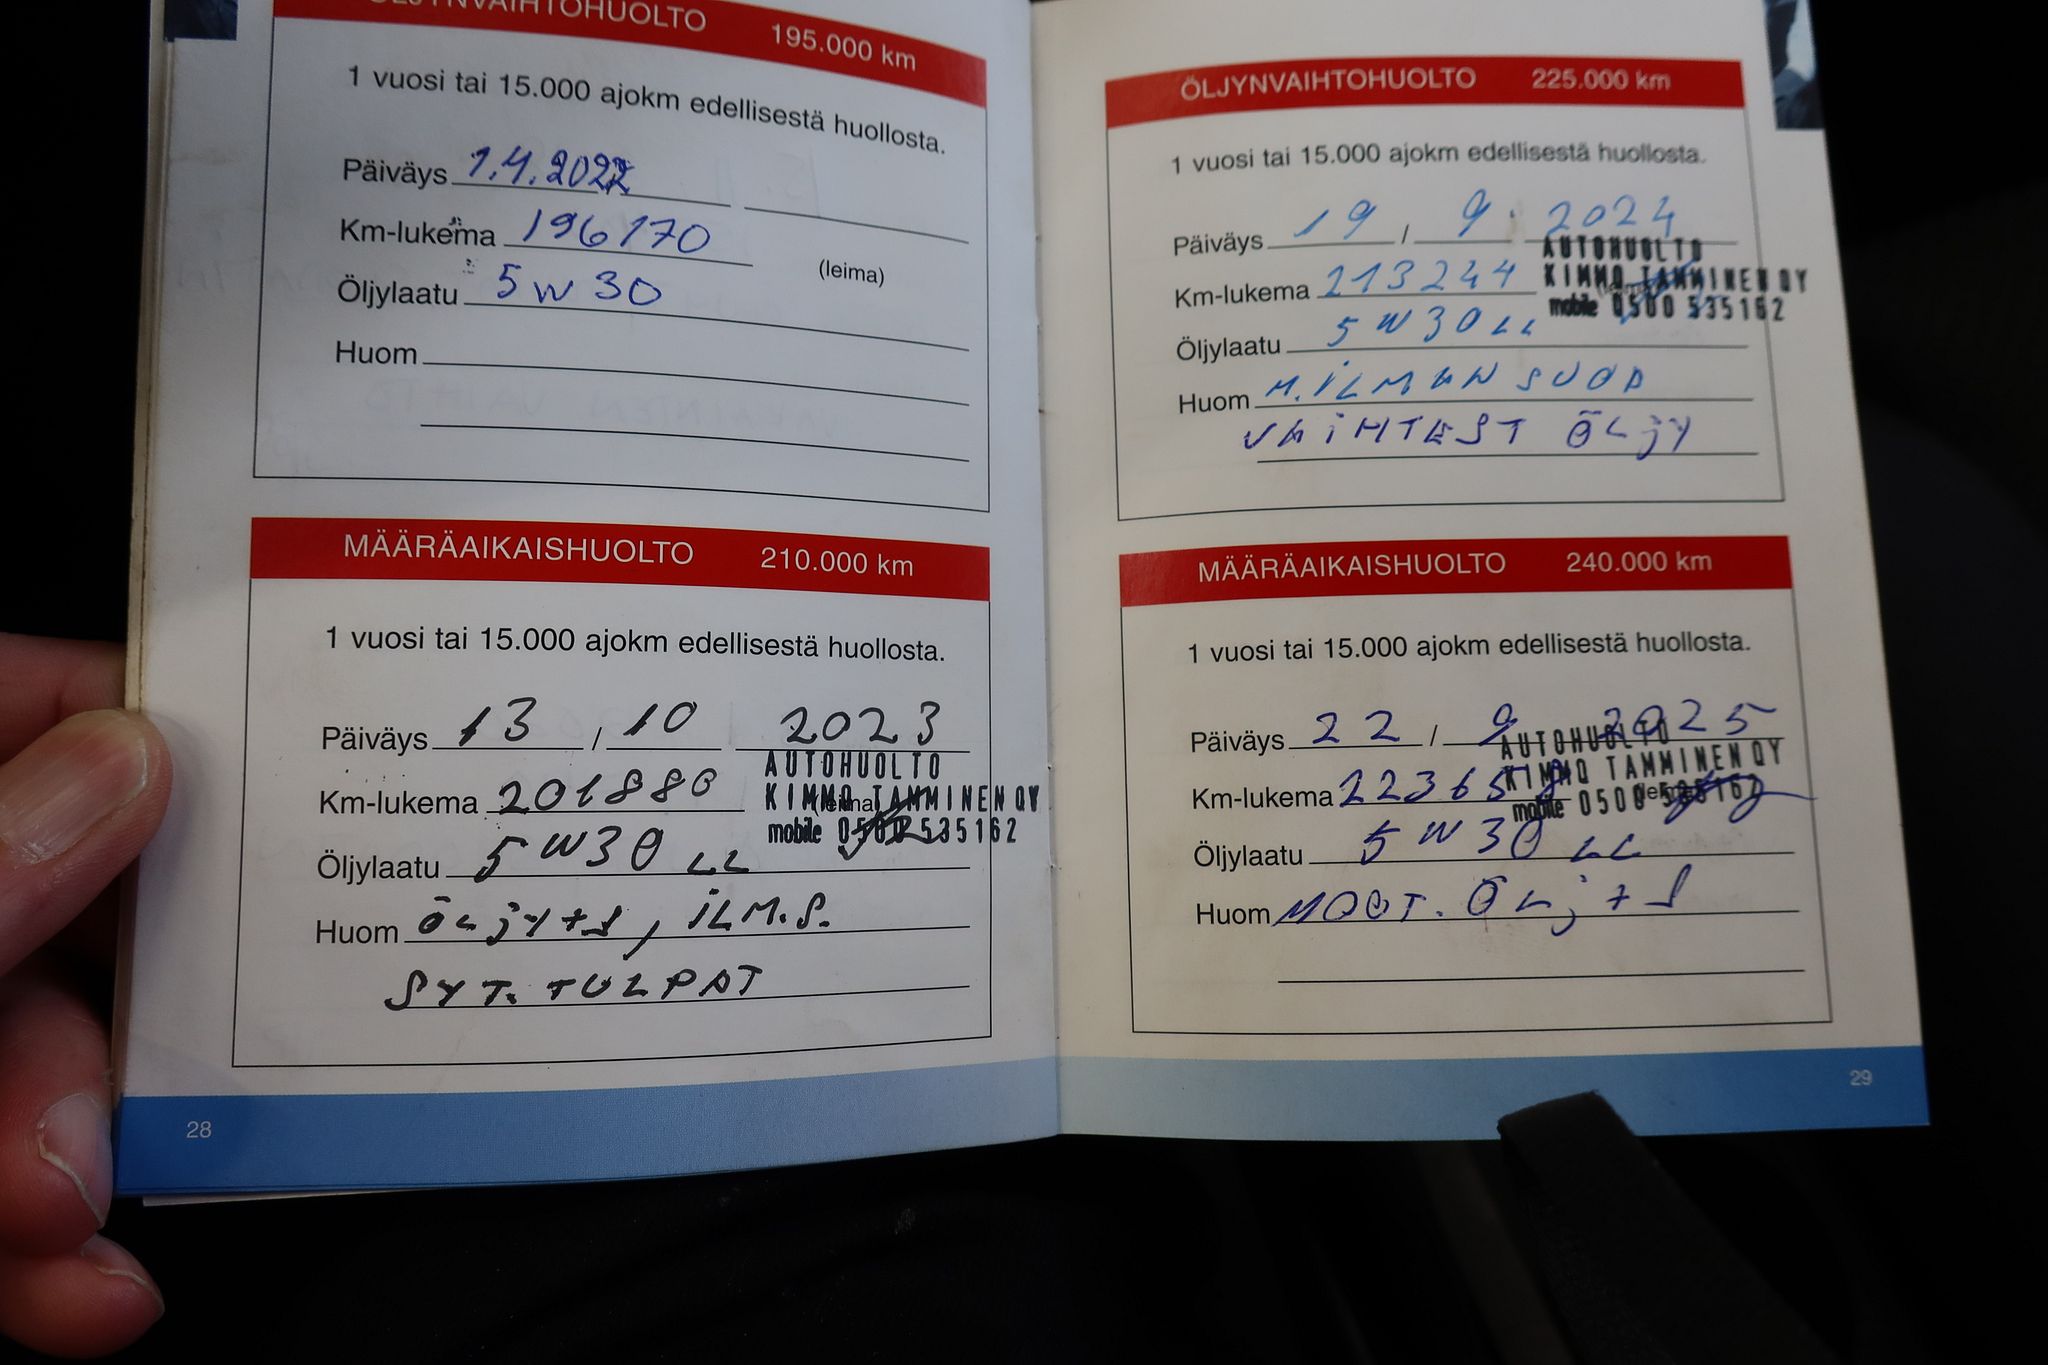 ÖLJYNVAIHTOHUOLTO 195.000 km
1 vuosi tai 15.000 ajokm edellisestä huollosta.
Päiväys 1.4.2022
Km-lukema 196170
(leima)
Öljylaatu 5W30
Huom
MÄÄRÄAIKAISHUOLTO 210.000 km
1 vuosi tai 15.000 ajokm edellisestä huollosta.
Päiväys 13 / 10 2023
AUTOHUOLTO
Km-lukema 201880 KIMMO TAMMINEN OY
(leima)
mobile 0500 535162
Öljylaatu 5W30 LL
Huom ÖLJY+S, ILM.S.
SYT. TULPAT
28
ÖLJYNVAIHTOHUOLTO 225.000 km
1 vuosi tai 15.000 ajokm edellisestä huollosta.
Päiväys 19 / 9. 2024
AUTOHUOLTO
Km-lukema 213244 KIMMO TAMMINEN OY
mobile 0500 535162
Öljylaatu 5W30 LL
Huom M.ILMAN SUOD
VAIHTEIST ÖLJY
MÄÄRÄAIKAISHUOLTO 240.000 km
1 vuosi tai 15.000 ajokm edellisestä huollosta.
Päiväys 22 / 9 2025
AUTOHUOLTO
Km-lukema KIMMO TAMMINEN OY
mobile 0500 535162
Öljylaatu 5W30 LL
Huom MOOT. ÖLJ + S
29